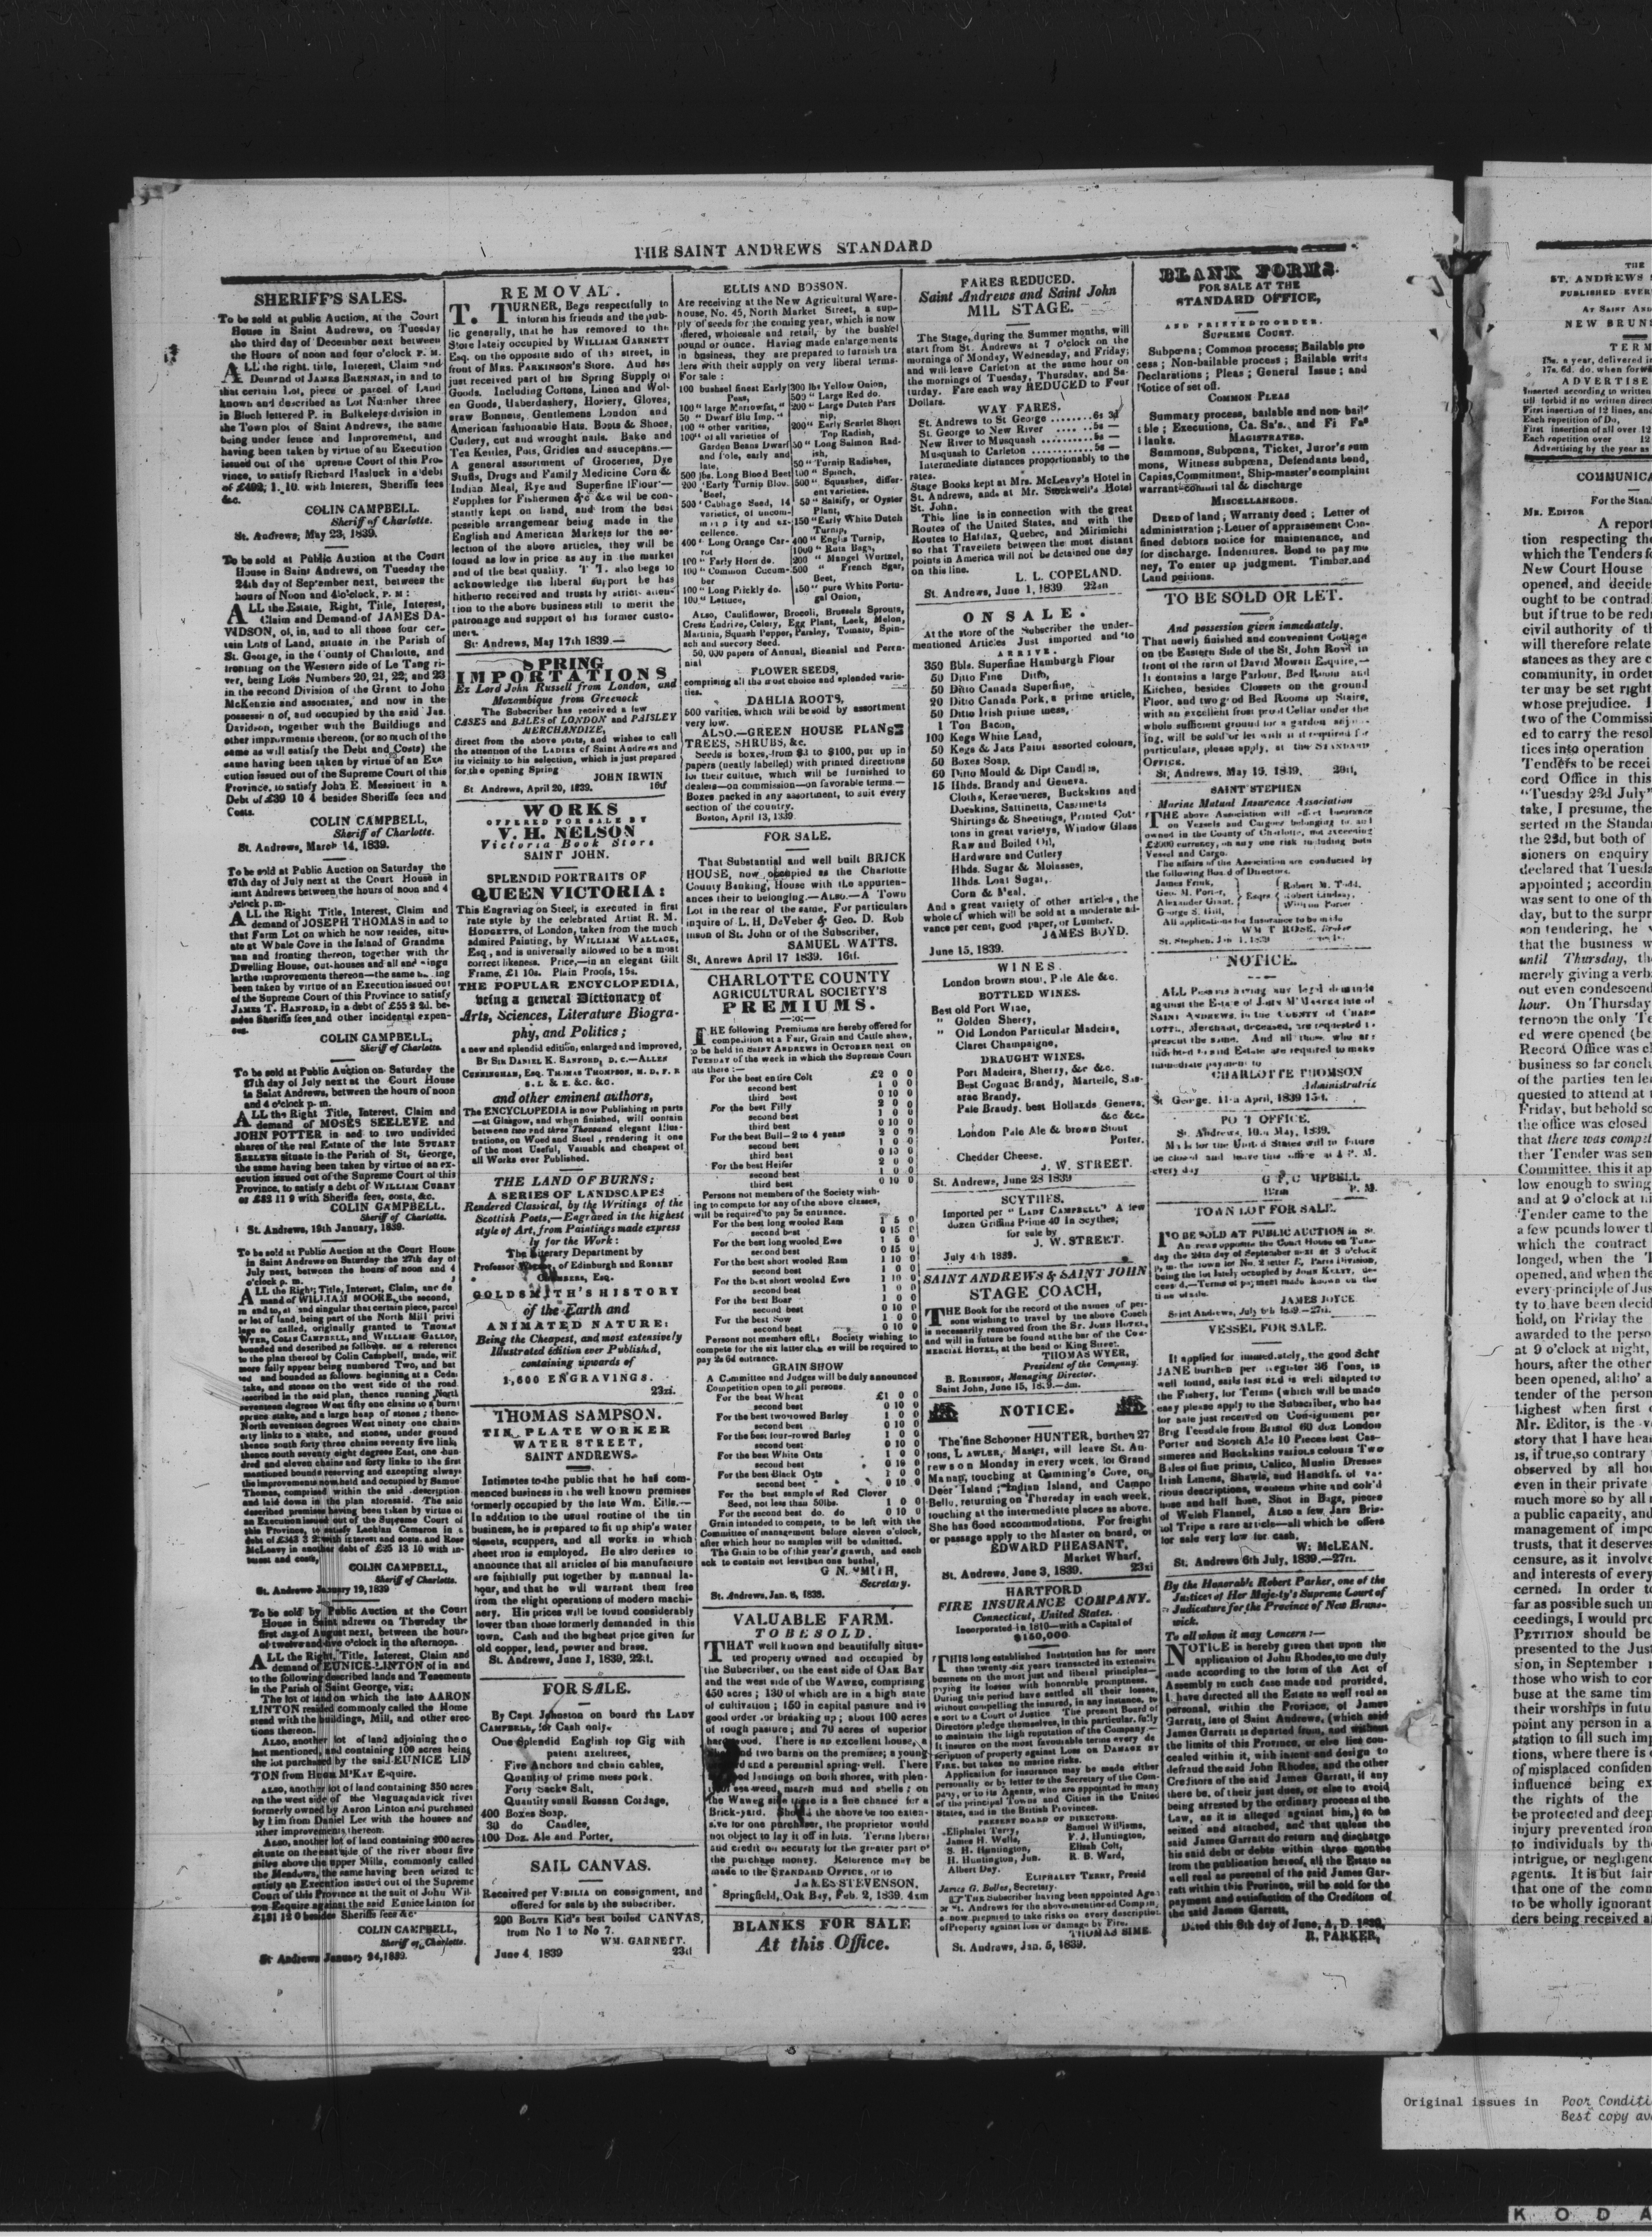 THE SAINT ANDREWS STANDARD
SHERIFF'S SALES.
To be sold at public Auction, at the Court
House in Saint Andrews, on Tuesday
the third day of December next between
the Hours of noon and four o'clock P. M.
ALL the right, title, Interest, Claim and
Demand of JAMES BRENNAN, in and to
that certain Lot, piece or parcel of Land
known and described as Lot Number three
in Block lettered P. in Bulkeleys division in
the Town plot of Saint Andrews, the same
being under fence and Improvement, and
having been taken by virtue of an Execution
issued out of the upreme Court of this Pro-
vince, to satisfy Richard Hasluck in a debt
of £492, 1. 10. with Interest, Sheriffs fees
&c.
COLIN CAMPBELL.
Sheriff of Charlotte.
St. Andrews, May 23, 1839.
To be sold at Public Auction at the Court
House in Saint Andrews, on Tuesday the
24th day of September next, between the
hours of Noon and 4 o'clock, P. M:
ALL the Estate, Right, Title, Interest,
Claim and Demand of JAMES DA-
VIDSON, of, in, and to all those four cer-
tain Lots of Land, situate in the Parish of
St. George, in the County of Charlotte, and
fronting on the Western side of Le Tang ri-
ver, being Lots Numbers 20, 21, 22, and 23
in the second Division of the Grant to John
McKenzie and associates, and now in the
possession of, and occupied by the said Jas.
Davidson, together with the Buildings and
other improvments thereon, (or so much of the
same as will satisfy the Debt and Costs) the
same having been taken by virtue of an Exe
cution issued out of the Supreme Court of this
Province, to satisfy John E. Messinett in a
Debt of £39 10 4 besides Sheriffs fees and
Costs.
COLIN CAMPBELL,
Sheriff of Charlotte.
St. Andrews, March 14, 1839.
To be sold at Public Auction on Saturday the
27th day of July next at the Court House in
saint Andrews between the hours of noon and 4
o'clock p. m-
ALL the Right Title, Interest, Claim and
demand of JOSEPH THOMAS in and to
that Farm Lot on which he now resides, situ-
ate at Whale Cove in the Island of Grandma
nan and fronting thereon, together with the
Dwelling House, out-houses and all and singu
lar the improvements thereon—the same having
been taken by virtue of an Execution issued out
of the Supreme Court of this Province to satisfy
JAMES T. HANFORD, in a debt of £55 2 2d. be-
sides Sheriffs fees and other incidental expen-
ces.
COLIN CAMPBELL,
Sheriff of Charlotte.
To be sold at Public Auction on Saturday the
27th day of July next at the Court House
in Saint Andrews, between the hours of noon
and 4 o'clock p. m.
ALL the Right Title, Interest, Claim and
demand of MOSES SEELEYE and
JOHN POTTER in and to two undivided
shares of the real Estate of the late STUART
SEELEYE situate in the Parish of St, George,
the same having been taken by virtue of an ex-
ecution issued out of the Supreme Court of this
Province, to satisfy a debt of WILLIAM CURRY
of £83 11 9 with Sheriffs fees, costs, &c.
COLIN CAMPBELL.
Sheriff of Charlotte.
St. Andrews, 19th January, 1839.
To be sold at Public Auction at the Court House
in Saint Andrews on Saturday the 27th day of
July next, between the hours of noon and 4
o'clock p. m.
ALL the Right, Title, Interest, Claim, and de
mand of WILLIAM MOORE, the second,
in and to, all and singular that certain piece, parcel
or lot of land, being part of the North Mill privi
lege so called, originally granted to THOMAS
WYER, COLIN CAMPBELL, and WILLIAM GALLOP,
bounded and described as follows. as a reference
to the plan thereof by Colin Campbell, made, will
more fully appear being numbered Two, and but
ted and bounded as follows. beginning at a Cedar
stake, and stones on the west side of the road.
described in the said plan, thence running North
seventeen degrees West fifty one chains to a burnt
spruce stake, and a large heap of stones; thence
North seventeen degrees West ninety one chains
sixty links to a stake, and stones, under ground
thence south forty three chains seventy five links
thence south seventy eight degrees East, one hun-
dred and eleven chains and forty links to the first
mentioned bounds reserving and excepting always
the improvements now held and occupied by Samuel
Thomas, comprised within the said description
and laid down in the plan aforesaid. The said
described premises having been taken by virtue of
an Execution issued out of the Supreme Court of
this Province, to satisfy Lachlan Cameron in a
debt of £343 3 2 with interest and costs. and Ross
McLeavy in another debt of £25 13 10 with in-
terest and costs,
COLIN CAMPBELL,
Sheriff of Charlotte.
St. Andrews January 19, 1839
To be sold by Public Auction at the Court
House in Saint Andrews on Thursday the
first day of August next, between the hours
of twelve and five o'clock in the afternoon.
ALL the Right, Title, Interest, Claim and
demand of EUNICE LINTON of in and
to the following described lands and Tenements
in the Parish of Saint George, viz:
The lot of land on which the late AARON
LINTON resided commonly called the Home
stead with the buildings, Mill, and other erec
tions thereon.
ALSO, another lot of land adjoining the o
last mentioned, and containing 100 acres being
the lot purchased by the said EUNICE LIN
TON from HUGH M'KAY Esquire.
ALSO, another lot of land containing 350 acres
on the west side of the Maguagadavick river
formerly owned by Aaron Linton and purchased
by him from Daniel Lee with the houses and
other improvements thereon.
ALSO, another lot of land containing 200 acres
situate on the east side of the river about five
miles above the upper Mills, commonly called
the Meadows, the same having been seized to
satisfy an Execution issued out of the Supreme
Court of this Province at the suit of John Wil-
son Esquire against the said Eunice Linton for
£131 12 0 besides Sheriffs fees &c
COLIN CAMPBELL,
Sheriff of Charlotte.
St Andrews January 24, 1839.
REMOVAL.
T. TURNER, Begs respectfully to
inform his friends and the pub-
lic generally, that he has removed to the
Store lately occupied by WILLIAM GARNETT
Esq. on the opposite side of the street, in
front of MRS. PARKINSON'S Store. And has
just received part of his Spring Supply of
Goods. Including Cottons, Linen and Wol-
en Goods, Haberdashery, Hosiery, Gloves,
straw Bonnets, Gentlemens London and
American fashionable Hats. Boots & Shoes,
Cutlery, cut and wrought nails. Bake and
Tea Kettles, Pots, Gridles and saucepans.—
A general assortment of Groceries, Dye
Stuffs, Drugs and Family Medicine Corn &
Indian Meal, Rye and Superfine Flour—
Supplies for Fishermen &c &c wil be con-
stantly kept on hand, and from the best
possible arrangement being made in the
English and American Markets for the se-
lection of the above articles, they will be
found as low in price as any in the market
and of the best quality. T T. also begs to
acknowledge the liberal support he has
hitherto received and trusts by strict atten-
tion to the above business still to merit the
patronage and support of his former custo-
mers.
St. Andrews, May 17th 1839.—
SPRING
IMPORTATIONS
Ex Lord John Russell from London, and
Mozambique from Greenock
The Subscriber has received a few
CASES and BALES of LONDON and PAISLEY
MERCHANDIZE,
direct from the above ports, and wishes to call
the attention of the LADIES of Saint Andrews and
its vicinity to his selection, which is just prepared
for the opening Spring
JOHN IRWIN
St Andrews, April 20, 1839. 16tf
WORKS
OFFERED FOR SALE BY
V. H. NELSON
Victoria Book Store
SAINT JOHN.
SPLENDID PORTRAITS OF
QUEEN VICTORIA:
This Engraving on Steel, is executed in first
rate style by the celebrated Artist R. M.
HODGETTS, of London, taken from the much
admired Painting, by WILLIAM WALLACE,
Esq, and is universally allowed to be a most
correct likeness. Price,—in an elegant Gilt
Frame, £1 10s. Plain Proofs, 15s.
THE POPULAR ENCYCLOPEDIA,
being a general Dictionary of
Arts, Sciences, Literature Biogra-
phy, and Politics;
a new and splendid edition, enlarged and improved,
BY SIR DANIEL K. SANFORD, D. C.—ALLEN
CUNNINGHAM, Esq. THOMAS THOMPSON, M. D. F. R
S. L & E. &c. &c.
and other eminent authors,
The ENCYCLOPEDIA is now Publishing in parts
—at Glasgow, and when finished, will contain
between two and three Thousand elegant Illus-
trations, on Wood and Steel, rendering it one
of the most Useful, Valuable and cheapest of
all Works ever Published.
THE LAND OF BURNS;
A SERIES OF LANDSCAPES
Rendered Classical, by the Writings of the
Scottish Poets,—Engraved in the highest
style of Art, from Paintings made express
ly for the Work:
The Literary Department by
Professor of Edinburgh and ROBERT
CHAMBERS, Esq.
GOLDSMITH'S HISTORY
of the Earth and
ANIMATED NATURE:
Being the Cheapest, and most extensively
Illustrated edition ever Published,
containing upwards of
1,600 ENGRAVINGS.
23zi.
THOMAS SAMPSON.
TIN PLATE WORKER
WATER STREET,
SAINT ANDREWS.
Intimates to the public that he has com-
menced business in the well known premises
formerly occupied by the late Wm. Eills.—
In addition to the usual routine of the tin
business, he is prepared to fit up ship's water
closets, scuppers, and all works in which
sheet iron is employed. He also desires to
announce that all articles of his manufacture
are faithfully put together by mannual la-
hour, and that he will warrant them free
from the slight operations of modern machi-
nery. His prices will be found considerably
lower than those formerly demanded in this
town. Cash and the highest price given for
old copper, lead, pewter and brass.
St. Andrews, June 1, 1839, 22:1.
FOR SALE.
By Capt. Johnston on board the LADY
CAMPBELL, for Cash only.
One splendid English top Gig with
patent axeltrees,
Five Anchors and chain cables,
Quantity of prime mess pork.
Forty Sacks Salt,
Quantity small Russan Cordage,
400 Boxes Soap,
30 do Candles,
100 Doz. Ale and Porter,
SAIL CANVAS.
Received per VIBILIA on consignment, and
offered for sale by the subscriber.
200 BOLTS Kid's best boiled CANVAS,
from No 1 to No 7.
WM. GARNETT.
June 4 1839 23tf
ELLIS AND BOSSON.
Are receiving at the New Agricultural Ware-
house, No. 45, North Market Street, a sup-
ply of seeds for the coming year, which is now
offered, wholesale and retail, by the bushel
pound or ounce. Having made enlargements
in business, they are prepared to furnish tra
ders with their supply on very liberal terms.
For sale:
100 bushel finest Early
Peas,
100 " large Marrowfat, "
50 " Dwarf Blu Imp. "
100 " other varieties,
100 " of all varieties of
Garden Beans Dwarf
and Pole, early and
late,
500 lbs. Long Blood Beet
200 'Early Turnip Bloo.
Beet,
500 ' Cabbage Seed, 14
varieties, of uncom-
mon purity and ex-
cellence.
400 ' Long Orange Car-
rot
100 " Early Horn do.
100 " Common Cucum-
ber
100 " Long Prickly do.
100 " Lettuce,
300 lbs Yellow Onion,
500 " Large Red do.
200 " Large Dutch Pars
nip,
200 " Early Scarlet Short
Top Radish,
50 " Long Salmon Rad-
ish,
50 " Turnip Radishes,
100 " Spinch,
500 ". Squashes, differ-
ent varieties.
50 " Salsify, or Oyster
Plant,
150 "Early White Dutch
Turnip,
400 " Englis Turnip,
1000 " Ruta Baga,
200 " Mangel Wurtzel,
500 " French Sgar,
Beet,
150 " pure White Portu-
gal Onion,
ALSO, Cauliflower, Brocoli, Brussels Sprouts,
Cress Endrize, Celery, Egg Plant, Leek, Melon,
Martinia, Squash Pepper, Parsley, Tomato, Spin-
ach and surcory Seed.
50,000 papers of Annual, Bieanial and Peren-
nial
FLOWER SEEDS,
comprising all the most choice and splended varie-
ties.
DAHLIA ROOTS,
500 varieties, which will be sold by assortment
very low.
ALSO.—GREEN HOUSE PLANTS
TREES, SHRUBS, &c.
Seeds in boxes, from $1 to $100, put up in
papers (neatly labelled) with printed directions
for their culture, which will be furnished to
dealers—on commission—on favorable terms.—
Boxes packed in any assortment, to suit every
section of the country.
Boston, April 13, 1839.
FOR SALE.
That Substantial and well built BRICK
HOUSE, now occupied as the Charlotte
County Banking, House with the appurten-
ances their to belonging.—ALSO.—A Town
Lot in the rear of the same. For particulars
inquire of L, H, DeVeber & Geo. D. Rob
inson of St. John or of the Subscriber,
SAMUEL WATTS.
St, Anrews April 17 1839. 16tf.
CHARLOTTE COUNTY
AGRICULTURAL SOCIETY'S
PREMIUMS.
THE following Premiums are hereby offered for
competition at a Fair, Grain and Cattle shew,
to be held in SAINT ANDREWS in OCTOBER next on
TUESDAY of the week in which the Supreme Court
sits there:—
For the best entire Colt £2 0 0
second best 1 0 0
third best 0 10 0
For the best Filly 2 0 0
second best 1 0 0
third best 0 10 0
For the best Bull—2 to 4 years 2 0 0
second best 1 0 0
third best 0 10 0
For the best Heifer 2 0 0
second best 1 0 0
third best 0 10 0
Persons not members of the Society wish-
ing to compete for any of the above classes,
will be required to pay 5s entrance.
For the best long wooled Ram 1 5 0
second best 0 15 0
For the best long wooled Ewe 1 5 0
second best 0 15 0
For the best short wooled Ram 1 10 0
second best 1 0 0
For the best short wooled Ewe 1 10 0
second best 1 0 0
For the best Boar 1 0 0
second best 0 10 0
For the best Sow 1 0 0
second best 0 10 0
Persons not members of the Society wishing to
compete for the six latter classes will be required to
pay 2s 6d entrance.
GRAIN SHOW
A Committee and Judges will be duly announced
Competition open to all persons.
For the best Wheat £1 0 0
second best 0 10 0
For the best two rowed Barley 1 0 0
second best 0 10 0
For the best four-rowed Barley 1 0 0
second best 0 10 0
For the best White Oats 1 0 0
second best 0 10 0
For the best Black Oats 1 0 0
second best 0 10 0
For the best sample of Red Clover
Seed, not less than 50lbs. 1 0 0
For the second best do. do 0 10 0
Grain intended to compete, to be left with the
Committee of management before eleven o'clock,
after which hour no samples will be admitted.
The Grain to be of this year's growth, and each
sack to contain not less than one bushel,
G N. SMITH,
Secretary.
St. Andrews, Jan. 8, 1838.
VALUABLE FARM.
TO BE SOLD.
THAT well known and beautifully situa-
ted property owned and occupied by
the Subscriber, on the east side of OAK BAY
and the west side of the WAWEG, comprising
450 acres; 130 of which are in a high state
of cultivation; 150 in capital pasture and in
good order for breaking up; about 100 acres
of rough pasture; and 70 acres of superior
hardwood. There is an excellent house,
and two barns on the premises; a young
and a perennial spring well. There
good landings on both shores, with plen-
sea weed, marsh mud and shells; on
the Waweg side there is a fine chance for a
Brick-yard. Should the above be too exten-
sive for one purchaser, the proprietor would
not object to lay it off in lots. Terms liberal
and credit on security for the greater part of
the purchase money. Reference may be
made to the STANDARD OFFICE, or to
JAMES STEVENSON,
Springfield, Oak Bay, Feb. 2, 1839. 4xm
BLANKS FOR SALE
At this Office.
FARES REDUCED.
Saint Andrews and Saint John
MIL STAGE.
The Stage, during the Summer months, will
start from St. Andrews at 7 o'clock on the
mornings of Monday, Wednesday, and Friday;
and will leave Carleton at the same hour on
the mornings of Tuesday, Thursday, and Sa-
turday. Fare each way REDUCED to Four
Dollars.
WAY FARES.
St. Andrews to St George ........6s 3d
St. George to New River .... ..5s —
New River to Musquash ...........5s —
Musquash to Carleton ............5s —
Intermediate distances proportionably to the
rates.
Stage Books kept at Mrs. McLeavy's Hotel in
St. Andrews, and at Mr. Stockwell's Hotel
St. John.
This line is in connection with the great
Routes of the United States, and with the
Routes to Halifax, Quebec, and Mirimichi
so that Travellers between the most distant
points in America will not be detained one day
on this line.
L. L. COPELAND.
St. Andrews, June 1, 1839 22an
ON SALE.
At the store of the Subscriber the under-
mentioned Articles Just imported and to
ARRIVE.
350 Bbls. Superfine Hamburgh Flour
50 Ditto Fine Ditto,
50 Ditto Canada Superfine,
20 Ditto Canada Pork, a prime article,
50 Ditto Irish prime mess,
1 Ton Bacon,
100 Kegs White Lead,
50 Kegs & Jars Paint assorted colours,
50 Boxes Soap,
60 Ditto Mould & Dipt Candles,
15 Hhds. Brandy and Geneva.
Cloths, Kerseneres, Buckskins and
Doeskins, Sattinetts, Cassinetts
Shirtings & Sheetings, Printed Cot-
tons in great varietys, Window Glass
Raw and Boiled Oil,
Hardware and Cutlery
Hhds. Sugar & Molasses,
Hhds. Loaf Sugar,
Corn & Meal.
And a great variety of other articles, the
whole of which will be sold at a moderate ad-
vance per cent, good paper, or Lumber.
JAMES BOYD.
June 15, 1839.
WINES.
London brown stout, Pale Ale &c.
BOTTLED WINES.
Best old Port Wine,
" Golden Sherry,
" Old London Particular Madeira,
Claret Champaigne,
DRAUGHT WINES.
Port Madeira, Sherry, &c &c.
Best Cognac Brandy, Martelle, Sas-
arac Brandy.
Pale Brandy. best Hollands Geneva,
&c &c.
London Pale Ale & brown Stout
Porter.
Chedder Cheese.
J. W. STREET.
St. Andrews, June 28 1839
SCYTHES.
Imported per "LADY CAMPBELL" A few
dozen Griffins Prime 40 In Scythes;
for sale by
J. W. STREET.
July 4th 1839.
SAINT ANDREWS & SAINT JOHN
STAGE COACH,
THE Book for the record of the names of per-
sons wishing to travel by the above Coach
is necessarily removed from the ST. JOHN HOTEL,
and will in future be found at the bar of the COM-
MERCIAL HOTEL, at the head of King Street.
THOMAS WYER,
President of the Company.
B. ROBINSON, Managing Director.
Saint John, June 15, 1839.—3m.
NOTICE.
The fine Schooner HUNTER, burthen 27
tons, LAWLER, Master, will leave St. An-
rews on Monday in every week, for Grand
Manan, touching at Cumming's Cove, on
Deer Island; Indian Island, and Campo
Bello, returning on Thursday in each week,
touching at the intermediate places as above.
She has good accommodations. For freight
or passage apply to the Master on board, or
EDWARD PHEASANT,
Market Wharf.
St. Andrews, June 3, 1839. 23zi
HARTFORD
FIRE INSURANCE COMPANY.
Connecticut, United States.
Incorporated in 1810—with a Capital of
$150,000
THIS long established Institution has for more
than twenty-six years transacted its extensive
business on the most just and liberal principles—
paying its losses with honorable promptness.
During this period have settled all their losses,
without compelling the insured, in any instance, to
resort to a Court of Justice The present Board of
Directors pledge themselves, in this particular, fully
to maintain the high reputation of the Company.—
It insures on the most favourable terms every de
scription of property against LOSS OR DAMAGE BY
FIRE, but takes no marine risks.
Application for insurance may be made either
personally or by letter to the Secretary of the Com-
pany, or to its Agents, who are appointed in many
of the principal Towns and Cities in the United
States, and in the British Provinces.
PRESENT BOARD OF DIRECTORS.
Eliphalet Terry, Samuel Williams,
James H. Wells, F. J. Huntington,
S. H. Huntington, Elisah Colt,
H. Huntington, Jun. R. B. Ward,
Albert Day.
ELIPHALET TERRY, Presid
James G. Bolles, Secretary.
THE Subscriber having been appointed Agent
St. Andrews for the above mentioned Company,
is now prepared to take risks on every description
of Property against loss or damage by Fire.
THOMAS SIME.
St. Andrews, Jan. 5, 1839.
BLANK FORMS.
FOR SALE AT THE
STANDARD OFFICE,
AND PRINTED TO ORDER.
SUPREME COURT.
Subpœna; Common process; Bailable pro
cess; Non-bailable process; Bailable writs
Declarations; Pleas; General Issue; and
Notice of set off.
COMMON PLEAS
Summary process, bailable and non-bail
able; Executions, Ca. Sa's., and Fi Fas
Blanks.
MAGISTRATES.
Summons, Subpœna, Ticket, Juror's sum
mons, Witness subpœna, Defendants bond,
Capias, Commitment, Ship-master's complaint
warrant commital & discharge
MISCELLANEOUS.
DEED of land; Warranty deed; Letter of
administration; Letter of appraisement Con-
fined debtors notice for maintenance, and
for discharge. Indentures. Bond to pay mo
ney, To enter up judgment. Timber and
Land petitions.
TO BE SOLD OR LET.
And possession given immediately.
That newly finished and convenient Cottage
on the Eastern Side of the St. John Road in
front of the farm of David Mowatt Esquire,—
It contains a large Parlour, Bed Room and
Kitchen, besides Clossets on the ground
Floor, and two good Bed Rooms up Stairs,
with an excellent frost proof Cellar under the
whole sufficient ground for a garden adjoin-
ing, will be sold or let with it if required for
particulars, please apply, at the STANDARD
OFFICE.
St. Andrews, May 15. 1839, 20tf,
SAINT STEPHEN
Marine Mutual Insurance Association
THE above Association will effect Insurance
on Vessels and Cargoes belonging to and
owned in the County of Charlotte, not exceeding
£2000 currency, on any one risk including both
Vessel and Cargo.
The affairs of the Association are conducted by
the following Board of Directors.
James Frink,
Geo. M. Porter,
Alexander Grant,
George S. Hill,
Esqrs
Robert M. Todd,
Robert Lindsay,
William Porter
All applications for Insurance to be made
WM T ROSE, Broker
St. Stephen, Jan 1, 1839
NOTICE.
ALL Persons having any legal demands
against the Estate of JOHN M'MASTER late of
SAINT ANDREWS, in the COUNTY of CHARE
LOTTE, Merchant, deceased, are requested to
present the same. And all those who are
indebted to said Estate are required to make
immediate payment to
CHARLOTTE THOMSON
Administratrix
St George. 11th April, 1839 15tf.
POST OFFICE.
St. Andrews, 10th May, 1839.
Mails for the United States will in future
be closed and leave this office at 4 P. M.
every day
G F. C MPBELL
P. M.
TOWN LOT FOR SALE.
TO BE SOLD AT PUBLIC AUCTION in St.
Andrews opposite the Court House on Tues-
day the 24th day of September next at 3 o'clock
p. m. the town lot No. 2 letter E, Parrs Division,
being the lot lately occupied by JOHN KELLY, de-
ceased,—Terms of payment made known on the
time of sale.
JAMES JOYCE
Saint Andrews, July 6th 1839.—27tf.
VESSEL FOR SALE.
If applied for immediately, the good Schr
JANE burthen per register 36 Tons, is
well found, sails fast and is well adapted to
the Fishery, for Terms (which will be made
easy please apply to the Subscriber, who has
for sale just received on Consignment per
Brig Teesdale from Bristol 60 doz London
Porter and Scotch Ale 10 Pieces best Cas-
simeres and Buckskins various colours Two
Bales of fine prints, Calico, Muslin Dresses
Irish Linens, Shawls, and Handkfs. of va-
rious descriptions, womens white and col'd
hose and half hose, Shot in Bags, pieces
of Welsh Flannel, Also a few Jars Bris-
tol Tripe a rare article—all which he offers
for sale very low for cash,
W: McLEAN.
St. Andrews 6th July, 1839.—27n.
By the Honorable Robert Parker, one of the
Justices of Her Majesty's Supreme Court of
Judicature for the Province of New Bruns-
wick.
To all whom it may Concern:—
NOTICE is hereby given that upon the
application of John Rhodes, to me duly
made according to the form of the Act of
Assembly in such case made and provided,
I have directed all the Estate as well real as
personal, within the Province, of James
Garratt, late of Saint Andrews, (which said
James Garratt is departed from, and without
the limits of this Province, or else lies con-
cealed within it, with intent and design to
defraud the said John Rhodes, and the other
Creditors of the said James Garratt, if any
there be, of their just dues, or else to avoid
being arrested by the ordinary process of the
Law, as it is alleged against him,) to be
seized and attached, and that unless the
said James Garratt do return and discharge
his said debt or debts within three months
from the publication hereof, all the Estate as
well real as personal of the said James Gar-
ratt within this Province, will be sold for the
payment and satisfaction of the Creditors of
the said James Garratt,
Dated this 8th day of June, A, D. 1839,
R, PARKER,
THE
ST. ANDREWS
PUBLISHED EVER
AT SAINT AND
NEW BRUN
TERM
15s. a year, delivered in
17s. 6d. do. when forw
ADVERTISE
Inserted according to written
till forbid if no written direc
First insertion of 12 lines, and
Each repetition of Do,
First insertion of all over 12
Each repetition over 12
Advertising by the year as
COMMUNICA
For the Stand
MR. EDITOR
A report
tion respecting the
which the Tenders fo
New Court House
opened, and decide
ought to be contrad
but if true to be redr
civil authority of th
will therefore relate
stances as they are c
community, in order
ter may be set right
whose prejudice. I
two of the Commissi
ed to carry the resol
tices into operation
Tenders to be recei
cord Office in this
"Tuesday 23d July"
take, I presume, the
serted in the Standa
the 23d, but both of
sioners on enquiry
declared that Tuesda
appointed; accordin
was sent to one of th
day, but to the surpr
son tendering, he
that the business w
until Thursday, th
merely giving a verb
out even condescend
hour. On Thursday
ternoon the only Te
ed were opened (be
Record Office was cl
business so far conclu
of the parties ten le
quested to attend at
Friday, but behold so
the office was closed
that there was compet
ther Tender was sen
Committee, this it ap
low enough to swing
and at 9 o'clock at ni
Tender came to the
a few pounds lower th
which the contract
longed, when the T
opened, and when the
every principle of Jus
ty to have been decid
hold, on Friday the
awarded to the perso
at 9 o'clock at night,
hours, after the other
been opened, altho' a
tender of the person
highest when first o
Mr. Editor, is the v
story that I have hea
is, if true, so contrary
observed by all hon
even in their private
much more so by all
a public capacity, and
management of impo
trusts, that it deserves
censure, as it involve
and interests of every
cerned. In order to
far as possible such un
ceedings, I would pro
PETITION should be
presented to the Just
sion, in September n
those who wish to cor
buse at the same tim
their worships in futu
point any person in a
station to fill such imp
tions, where there is
of misplaced confiden
influence being ex
the rights of the
be protected and deep
injury prevented from
to individuals by the
intrigue, or negligenc
agents. It is but fair
that one of the comm
to be wholly ignorant
ders being received a
Original issues in Poor Conditi
Best copy av
K O D A